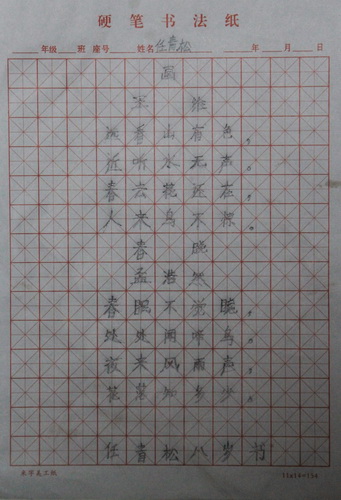 硬笔书法纸
年级 班 座号 姓名 任青松 年 月 日
画
王 维
远看山有色,
近听水无声。
春去花还在,
人来鸟不惊。
春 晓
孟 浩 然
春眠不觉晓,
处处闻啼鸟。
夜来风雨声,
花落知多少。
任青松八岁书